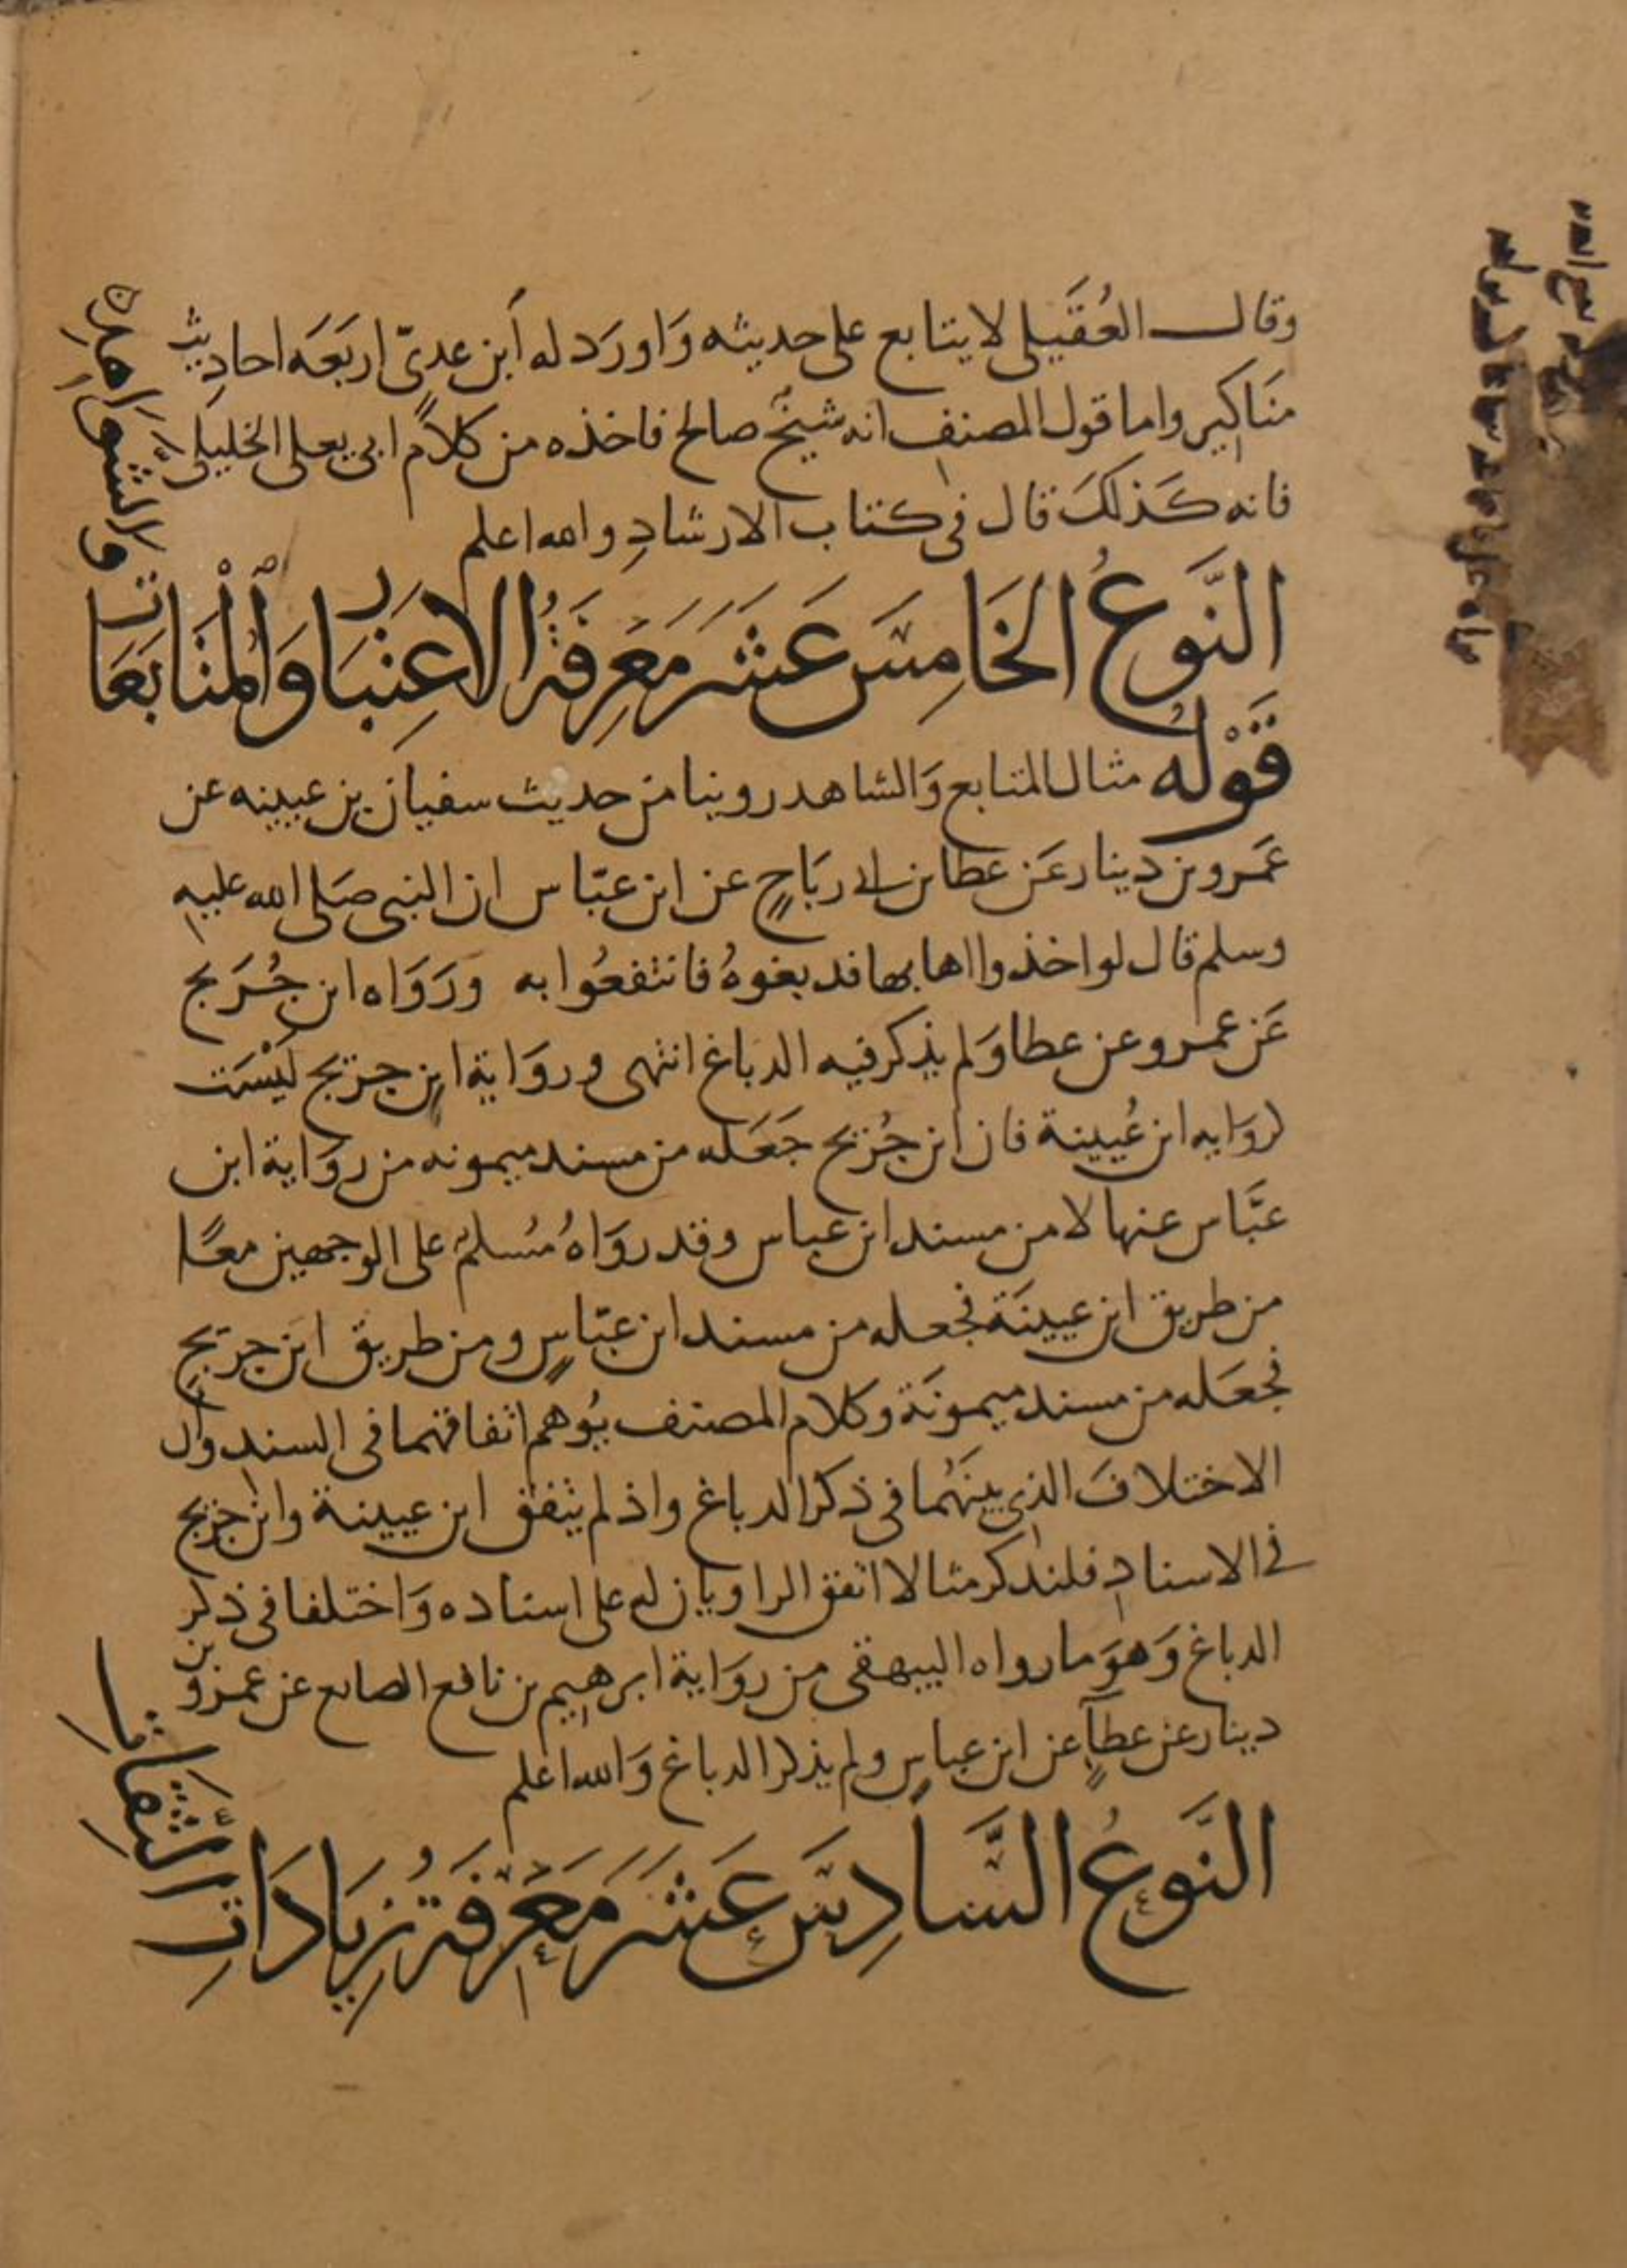 وقال العُقَيلي لا يتابع على حديثه وَاورَد له اَبن عدىّ اربَعَه احاديث
مَنَاكير واما قول المصنف انه شيخٌ صالح فاخذه من كلام ابى يعلى الخليلى
فانه كَذلكَ قال فى كتاب الارشادِ والله اعلم
النَّوعُ الخَامِسَ عَشَر مَعرِفَةُ الاعتِبَار وَالمُتَابَعَات
والشواهدِ
قَوْلهُ مثال المتابع وَالشاهد روينا من حديث سفيان بن عيينه عن
عَمرو بن دينار عَن عطا بن ابى رَبَاحٍ عن ابن عبّاس ان النبى صَلى الله عليهِ
وسلم قال لو اخذوا اهابها فدبغوهُ فانتفعُوا به ورَوَاه ابن جُرَيج
عَن عمرو عن عطا وَلم يذكر فيه الدباغ انتهى وروَاية ابن جريج ليْسَت
لروَايه ابن عُيينة فان ابن جُريج جَعَله من مسند ميمونه من روَاية ابن
عبَّاس عنها لا من مسند ابن عباس وقد روَاهُ مُسلمٌ على الوجهين معًا
من طريق ابن عيينَة فجعله من مسند ابن عبّاسٍ ومن طريق ابن جريجٍ
فجعَله من مسند ميمونَة وكلام المصنف يُوهم اتفاقهما فى السند وان
الاختلافَ الذى بينَهُما فى ذكر الدباغ واذ لم يتفق ابن عيينة وابن جريج
فى الاسنادِ فلنذكر مثالا اتفق الراويان له على اسناده وَاختلفا فى ذكر
الدباغ وَهوَ ما رواه البيهقى من روَاية ابرهيم بن نافع الصايع عن عمرو بن
دينار عن عطآءٍ عن ابن عباسٍ ولم يذكر الدباغ وَالله اعلم
النَّوعُ السَّادِسَ عَشَرَ مَعرِفَةُ زِيَادَاتِ
الثقات